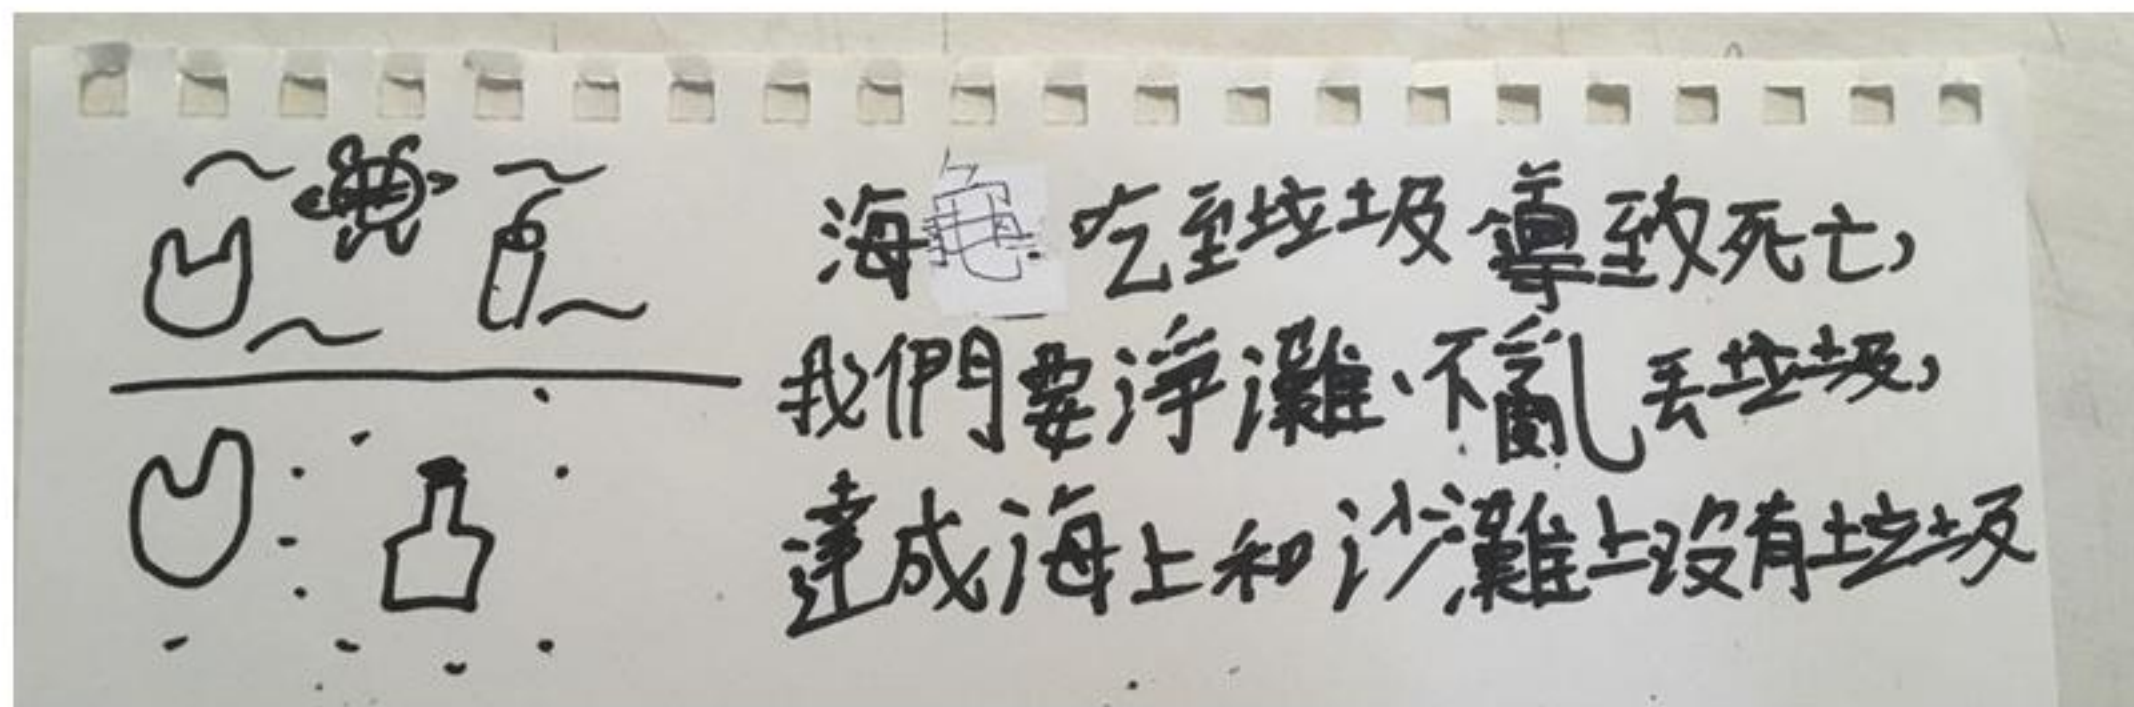 海龜吃到垃圾導致死亡，
我們要淨灘、不亂丟垃圾，
達成海上和沙灘上沒有垃圾